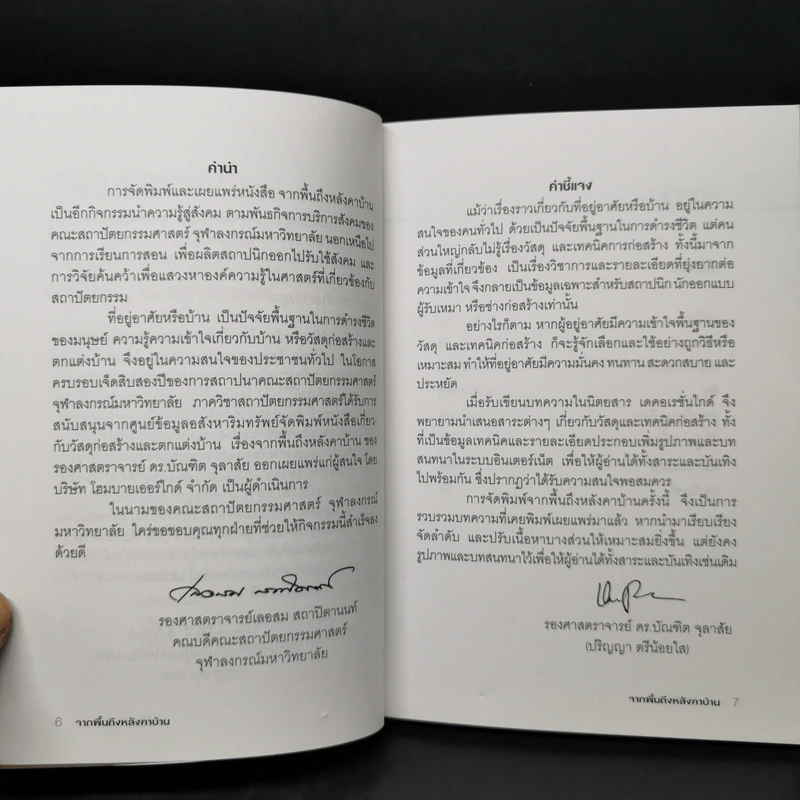 คำนำ
การจัดพิมพ์และเผยแพร่หนังสือ จากพื้นถึงหลังคาบ้าน
เป็นอีกกิจกรรมนำความรู้สู่สังคม ตามพันธกิจการบริการสังคมของ
คณะสถาปัตยกรรมศาสตร์ จุฬาลงกรณ์มหาวิทยาลัย นอกเหนือไป
จากการเรียนการสอน เพื่อผลิตสถาปนิกออกไปรับใช้สังคม และ
การวิจัยค้นคว้าเพื่อแสวงหาองค์ความรู้ในศาสตร์ที่เกี่ยวข้องกับ
สถาปัตยกรรม
ที่อยู่อาศัยหรือบ้าน เป็นปัจจัยพื้นฐานในการดำรงชีวิต
ของมนุษย์ ความรู้ความเข้าใจเกี่ยวกับบ้าน หรือวัสดุก่อสร้างและ
ตกแต่งบ้าน จึงอยู่ในความสนใจของประชาชนทั่วไป ในโอกาส
ครบรอบเจ็ดสิบสองปีของการสถาปนาคณะสถาปัตยกรรมศาสตร์
จุฬาลงกรณ์มหาวิทยาลัย ภาควิชาสถาปัตยกรรมศาสตร์ได้รับการ
สนับสนุนจากศูนย์ข้อมูลอสังหาริมทรัพย์จัดพิมพ์หนังสือเกี่ยว-
กับวัสดุก่อสร้างและตกแต่งบ้าน เรื่องจากพื้นถึงหลังคาบ้าน ของ
รองศาสตราจารย์ ดร.บัณฑิต จุลาสัย ออกเผยแพร่แก่ผู้สนใจ โดย
บริษัท โฮมบายเออร์ไกด์ จำกัด เป็นผู้ดำเนินการ
ในนามของคณะสถาปัตยกรรมศาสตร์ จุฬาลงกรณ์
มหาวิทยาลัย ใคร่ขอขอบคุณทุกฝ่ายที่ช่วยให้กิจกรรมนี้สำเร็จลง
ด้วยดี
รองศาสตราจารย์เลอสม สถาปิตานนท์
คณบดีคณะสถาปัตยกรรมศาสตร์
จุฬาลงกรณ์มหาวิทยาลัย
6 จากพื้นถึงหลังคาบ้าน
คำชี้แจง
แม้ว่าเรื่องราวเกี่ยวกับที่อยู่อาศัยหรือบ้าน อยู่ในความ
สนใจของคนทั่วไป ด้วยเป็นปัจจัยพื้นฐานในการดำรงชีวิต แต่คน
ส่วนใหญ่กลับไม่รู้เรื่องวัสดุ และเทคนิคการก่อสร้าง ทั้งนี้มาจาก
ข้อมูลที่เกี่ยวข้อง เป็นเรื่องวิชาการและรายละเอียดที่ยุ่งยากต่อ
ความเข้าใจ จึงกลายเป็นข้อมูลเฉพาะสำหรับสถาปนิก นักออกแบบ
ผู้รับเหมา หรือช่างก่อสร้างเท่านั้น
อย่างไรก็ตาม หากผู้อยู่อาศัยมีความเข้าใจพื้นฐานของ
วัสดุ และเทคนิคก่อสร้าง ก็จะรู้จักเลือกและใช้อย่างถูกวิธีหรือ
เหมาะสม ทำให้ที่อยู่อาศัยมีความมั่นคง ทนทาน สะดวกสบาย และ
ประหยัด
เมื่อรับเขียนบทความในนิตยสาร เดคอเรชั่นไกด์ จึง
พยายามนำเสนอสาระต่างๆ เกี่ยวกับวัสดุและเทคนิคก่อสร้าง ทั้ง
ที่เป็นข้อมูลเทคนิคและรายละเอียดประกอบเพิ่มรูปภาพและบท
สนทนาในระบบอินเตอร์เน็ต เพื่อให้ผู้อ่านได้ทั้งสาระและบันเทิง
ไปพร้อมกัน ซึ่งปรากฏว่าได้รับความสนใจพอสมควร
การจัดพิมพ์จากพื้นถึงหลังคาบ้านครั้งนี้ จึงเป็นการ
รวบรวมบทความที่เคยพิมพ์เผยแพร่มาแล้ว หากนำมาเรียบเรียง
จัดลำดับ และปรับเนื้อหาบางส่วนให้เหมาะสมยิ่งขึ้น แต่ยังคง
รูปภาพและบทสนทนาไว้เพื่อให้ผู้อ่านได้ทั้งสาระและบันเทิงเช่นเดิม
รองศาสตราจารย์ ดร.บัณฑิต จุลาสัย
(ปริญญา ตรีน้อยใส)
จากพื้นถึงหลังคาบ้าน 7